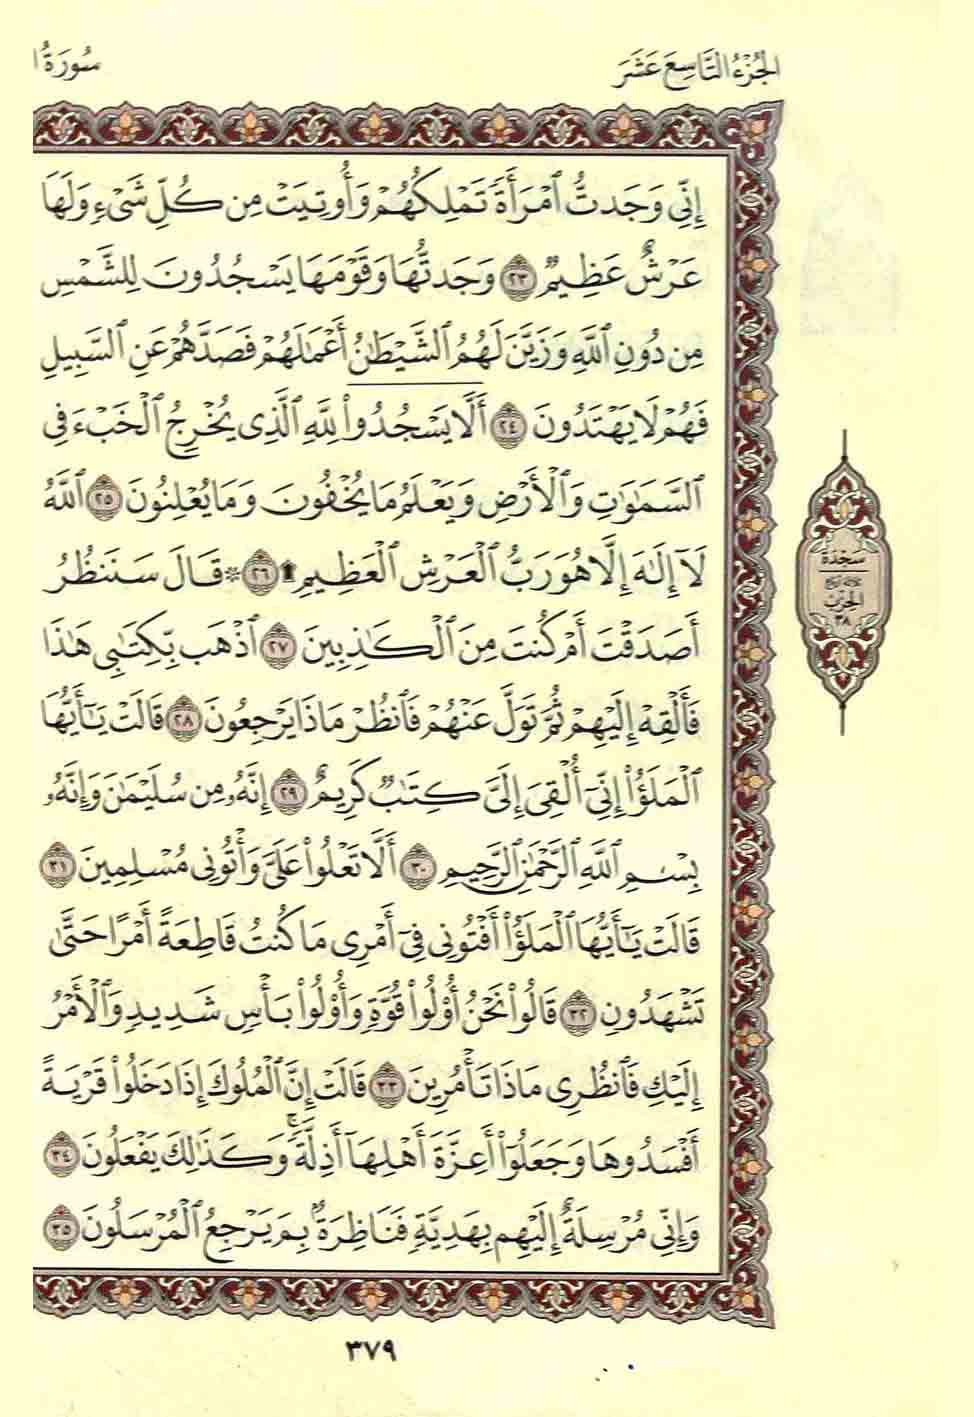 الجُزْءُ التَّاسِعَ عَشَرَ
سُورَةُ
إِنِّي وَجَدتُّ ٱمْرَأَةً تَمْلِكُهُمْ وَأُوتِيَتْ مِن كُلِّ شَىْءٍ وَلَهَا
عَرْشٌ عَظِيمٌ ٢٣ وَجَدتُّهَا وَقَوْمَهَا يَسْجُدُونَ لِلشَّمْسِ
مِن دُونِ ٱللَّهِ وَزَيَّنَ لَهُمُ ٱلشَّيْطَٰنُ أَعْمَٰلَهُمْ فَصَدَّهُمْ عَنِ ٱلسَّبِيلِ
فَهُمْ لَا يَهْتَدُونَ ٢٤ أَلَّا يَسْجُدُوا۟ لِلَّهِ ٱلَّذِى يُخْرِجُ ٱلْخَبْءَ فِى
ٱلسَّمَٰوَٰتِ وَٱلْأَرْضِ وَيَعْلَمُ مَا تُخْفُونَ وَمَا تُعْلِنُونَ ٢٥ ٱللَّهُ
لَآ إِلَٰهَ إِلَّا هُوَ رَبُّ ٱلْعَرْشِ ٱلْعَظِيمِ ۩ ٢٦ ۞ قَالَ سَنَنظُرُ
أَصَدَقْتَ أَمْ كُنتَ مِنَ ٱلْكَٰذِبِينَ ٢٧ ٱذْهَب بِّكِتَٰبِى هَٰذَا
فَأَلْقِهْ إِلَيْهِمْ ثُمَّ تَوَلَّ عَنْهُمْ فَٱنظُرْ مَاذَا يَرْجِعُونَ ٢٨ قَالَتْ يَٰٓأَيُّهَا
ٱلْمَلَؤُا۟ إِنِّىٓ أُلْقِىَ إِلَىَّ كِتَٰبٌ كَرِيمٌ ٢٩ إِنَّهُۥ مِن سُلَيْمَٰنَ وَإِنَّهُۥ
بِسْمِ ٱللَّهِ ٱلرَّحْمَٰنِ ٱلرَّحِيمِ ٣٠ أَلَّا تَعْلُوا۟ عَلَىَّ وَأْتُونِى مُسْلِمِينَ ٣١
قَالَتْ يَٰٓأَيُّهَا ٱلْمَلَؤُا۟ أَفْتُونِى فِىٓ أَمْرِى مَا كُنتُ قَاطِعَةً أَمْرًا حَتَّىٰ
تَشْهَدُونِ ٣٢ قَالُوا۟ نَحْنُ أُو۟لُوا۟ قُوَّةٍ وَأُو۟لُوا۟ بَأْسٍ شَدِيدٍ وَٱلْأَمْرُ
إِلَيْكِ فَٱنظُرِى مَاذَا تَأْمُرِينَ ٣٣ قَالَتْ إِنَّ ٱلْمُلُوكَ إِذَا دَخَلُوا۟ قَرْيَةً
أَفْسَدُوهَا وَجَعَلُوٓا۟ أَعِزَّةَ أَهْلِهَآ أَذِلَّةً ۖ وَكَذَٰلِكَ يَفْعَلُونَ ٣٤
وَإِنِّى مُرْسِلَةٌ إِلَيْهِم بِهَدِيَّةٍ فَنَاظِرَةٌۢ بِمَ يَرْجِعُ ٱلْمُرْسَلُونَ ٣٥
سَجْدَة
ثلاثة أرباع
الحِزْب
٣٨
٣٧٩